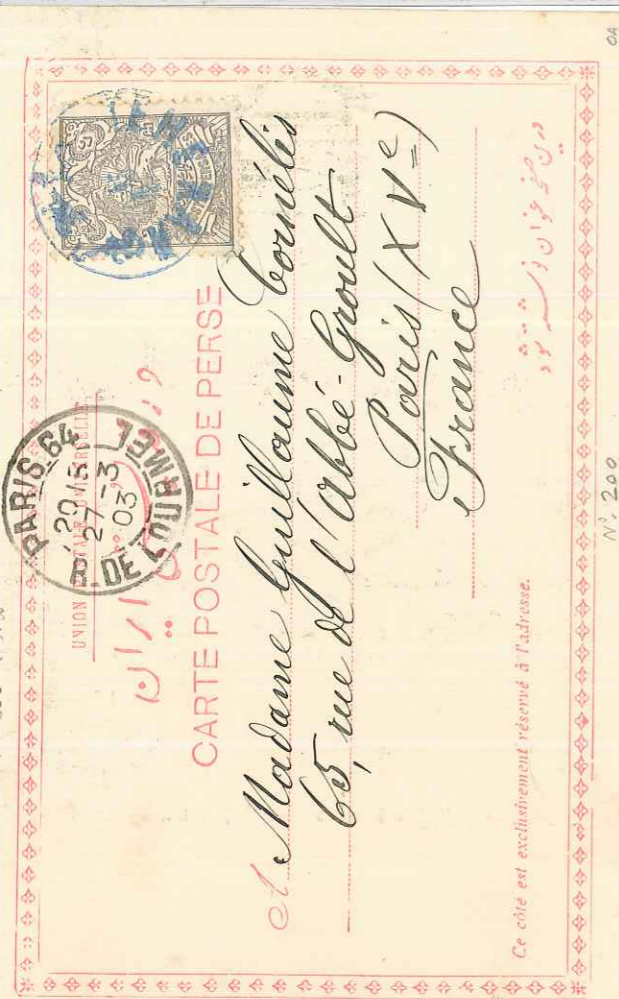 UNION POSTALE UNIVERSELLE
ایران
CARTE POSTALE DE PERSE
PARIS 64
20 15
27 - 3
03
R. DE LOURMEL
TEHERAN
A Madame Guillaume Cornélis
65, rue de l'Abbé-Groult
Paris (XVe)
France
Ce côté est exclusivement réservé à l'adresse.
N°. 200